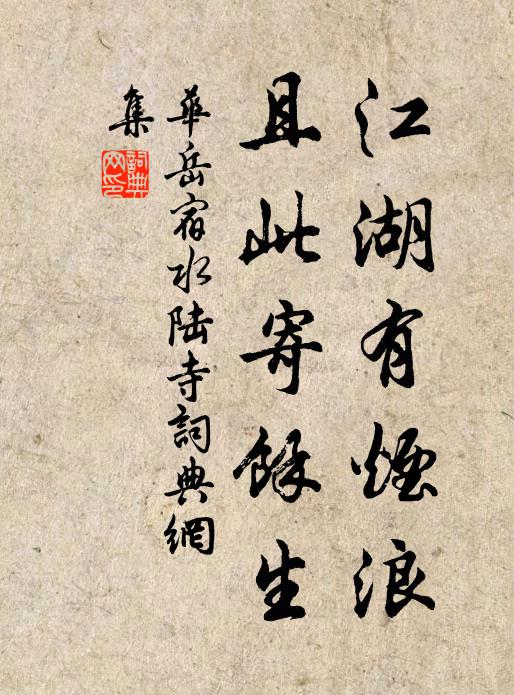 江湖有煙浪
且此寄餘生
華岳宿水陆寺詞典網
集
詞典网印